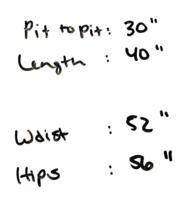 Pit to pit: 30"
Length: 40"
Waist: 52"
Hips: 56"